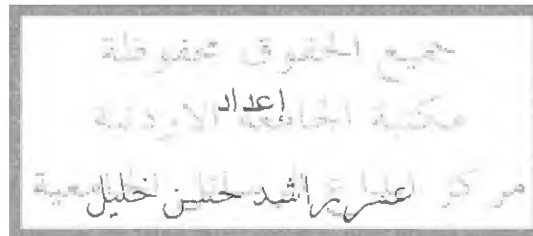 جميع الحقوق محفوظة
إعداد
مكتبة الجامعة الاردنية
مركز ايداع الرسائل الجامعية
راشد حسن خليل